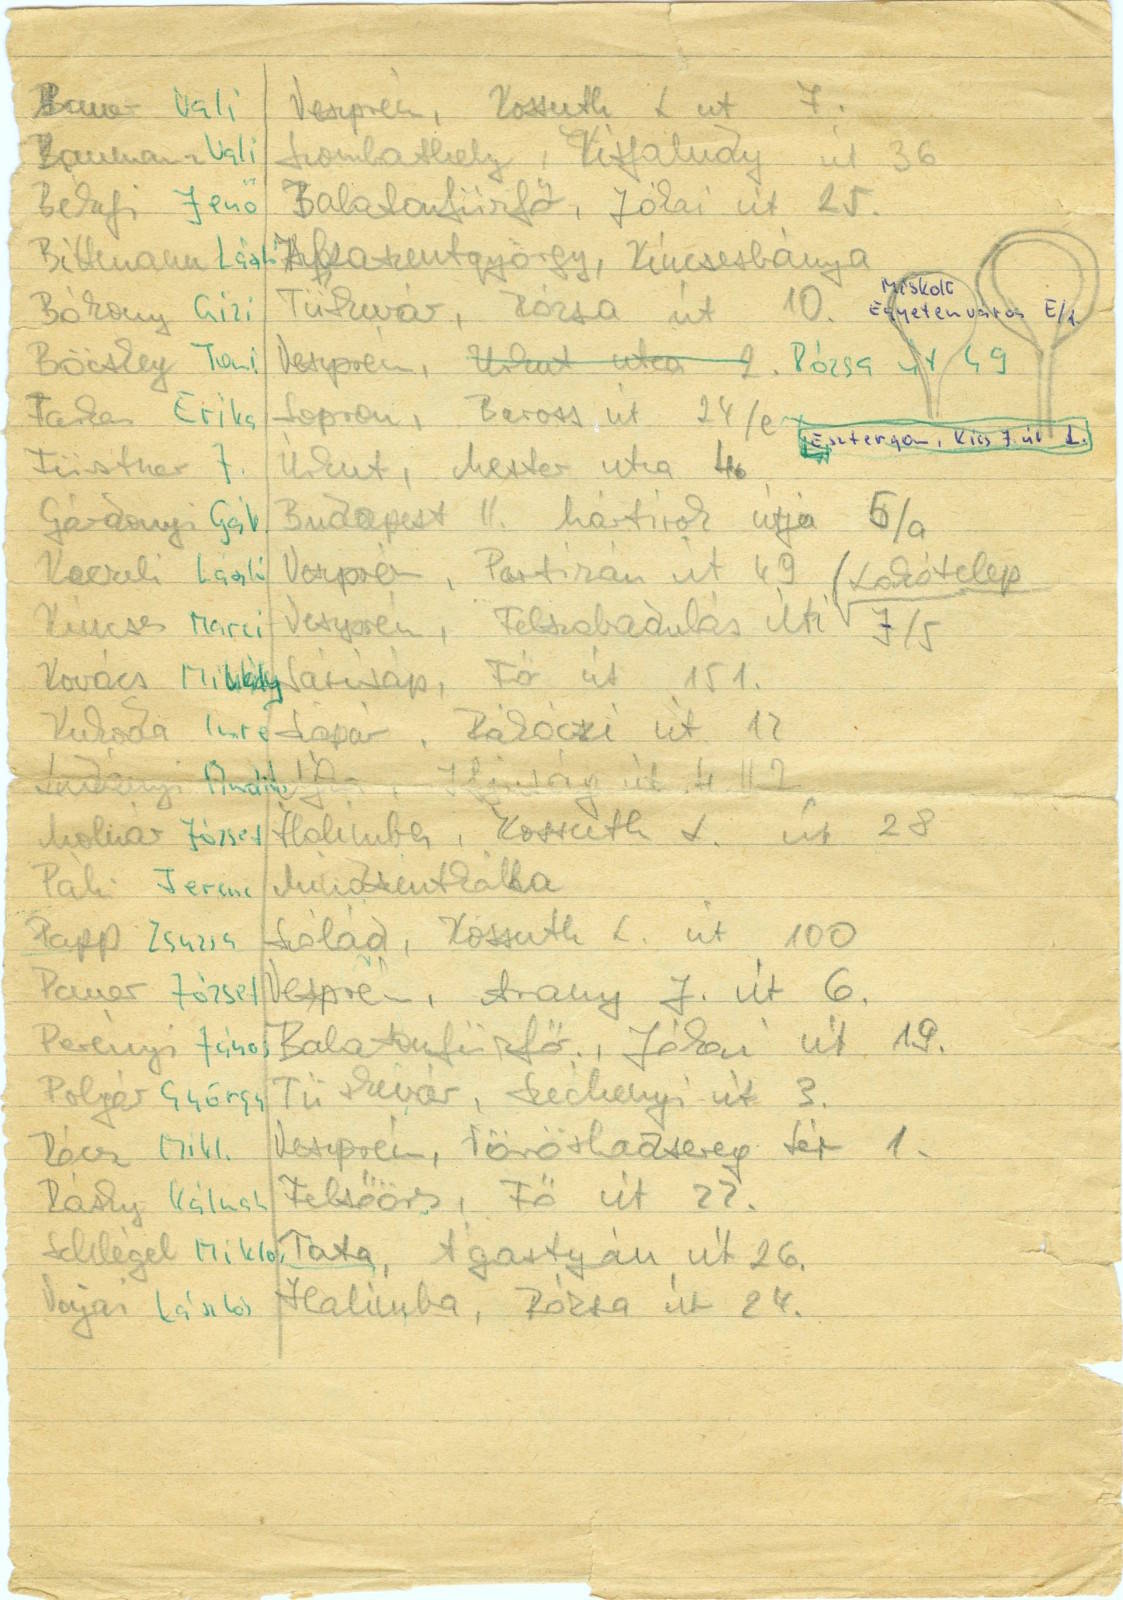 Bauer Vali Veszprém, Kossuth L út 7.
Baumann Vali Szombathely, Kisfaludy út 36
Jenő Balatonfűzfő, Jókai út 25.
Bittmann László Iszkaszentgyörgy, Kincsesbánya
Bókony Gizi Tüskevár, Dózsa út 10.
Miskolc
Egyetemváros E/1.
Böcskey Toni Veszprém, Úrkut utca 2. Dózsa út 49
Farkas Erika Sopron, Baross út 24/e
Esztergom, Kiss J. út 1.
Fürstner J. Úrkut, Mester utca 46
Gárdonyi Gáb. Budapest II. Mártirok útja 5/a
László Veszprém, Partizán út 49 (Lakótelep
Kincses Marci Veszprém, Felszabadulás úti 7/5
Kovács Mihály Sárisáp, Fő út 151.
Kukoda Imre Sápár, Rákóczi út 17
Ifjúság út 4 II 2
Molnár József Halimba, Kossuth L. út 28
Páli Ferenc Mindszentkálla
Papp Zsuzsa Szólád, Kossuth L. út 100
Pauer József Veszprém, Arany J. út 6.
Perényi János Balatonfűzfő, Jókai út 19.
Polgár György Tüskevár, Széchenyi út 3.
Rácz Mikl. Veszprém, Vöröshadsereg tér 1.
Rásky Kálmán Felsőörs, Fő út 22.
Schlégel Miklós Tata, Agostyán út 26.
Vajai László Halimba, Dózsa út 24.